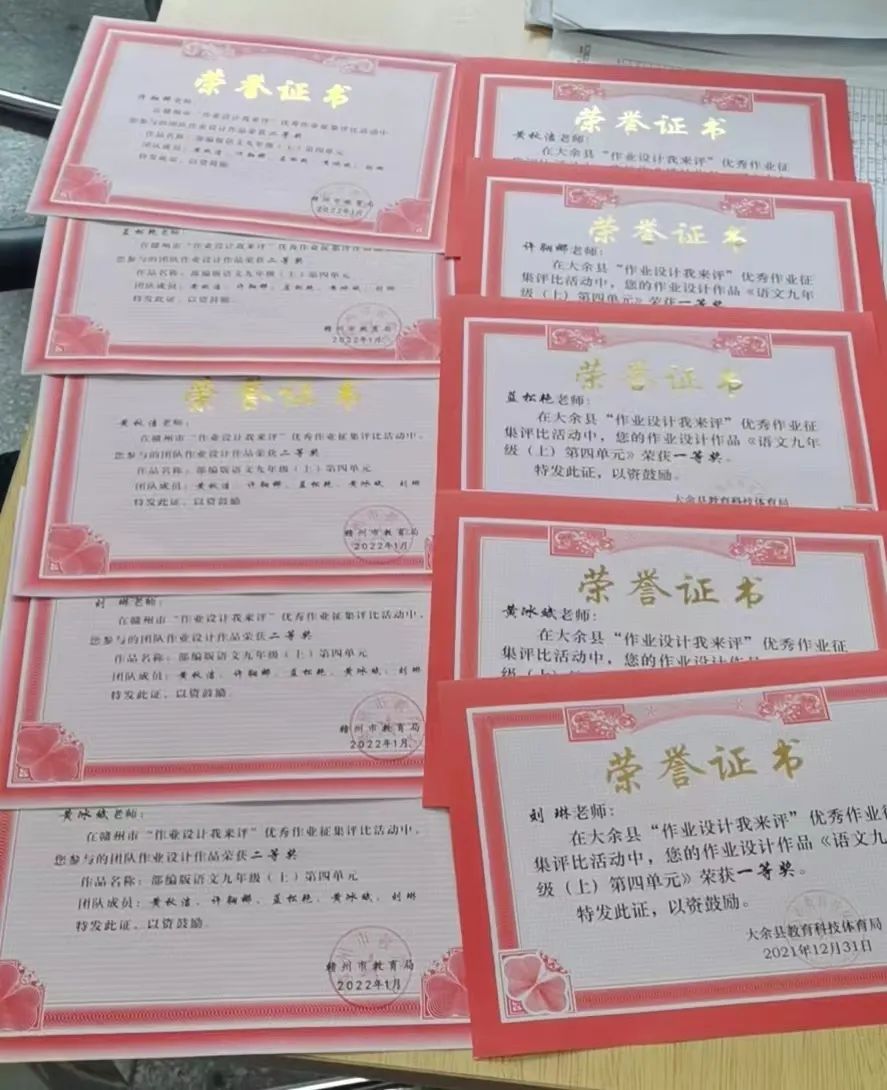 荣誉证书
许翱娜老师:
在赣州市“作业设计我来评”优秀作业征集评比活动中,
您参与的团队作业设计作品荣获二等奖
作品名称:部编版语文九年级(上)第四单元
团队成员:黄秋洁、许翱娜、蓝松艳、黄冰斌、刘琳
特发此证、以资鼓励
赣州市教育局
2022年1月
蓝松艳老师:
在赣州市“作业设计我来评”优秀作业征集评比活动中,
您参与的团队作业设计作品荣获二等奖
作品名称:部编版语文九年级(上)第四单元
团队成员:黄秋洁、许翱娜、蓝松艳、黄冰斌、刘琳
特发此证、以资鼓励
赣州市教育局
2022年1月
荣誉证书
黄秋洁老师:
在赣州市“作业设计我来评”优秀作业征集评比活动中,
您参与的团队作业设计作品荣获二等奖
作品名称:部编版语文九年级(上)第四单元
团队成员:黄秋洁、许翱娜、蓝松艳、黄冰斌、刘琳
特发此证、以资鼓励
赣州市教育局
2022年1月
刘琳老师:
在赣州市“作业设计我来评”优秀作业征集评比活动中,
您参与的团队作业设计作品荣获二等奖
作品名称:部编版语文九年级(上)第四单元
团队成员:黄秋洁、许翱娜、蓝松艳、黄冰斌、刘琳
特发此证、以资鼓励
赣州市教育局
2022年1月
黄冰斌老师:
在赣州市“作业设计我来评”优秀作业征集评比活动中,
您参与的团队作业设计作品荣获二等奖
作品名称:部编版语文九年级(上)第四单元
团队成员:黄秋洁、许翱娜、蓝松艳、黄冰斌、刘琳
特发此证、以资鼓励
赣州市教育局
2022年1月
荣誉证书
黄秋洁老师:
在大余县“作业设计我来评”优秀作业征
荣誉证书
许翱娜老师:
在大余县“作业设计我来评”优秀作业征
集评比活动中,您的作业设计作品《语文九年
级(上)第四单元》荣获一等奖
荣誉证书
蓝松艳老师:
在大余县“作业设计我来评”优秀作业征
集评比活动中,您的作业设计作品《语文九年
级(上)第四单元》荣获一等奖。
特发此证,以资鼓励。
大余县教育科技体育局
荣誉证书
黄冰斌老师:
在大余县“作业设计我来评”优秀作业征
集评比活动中,您的作业设计作品《语文九年
荣誉证书
刘琳老师:
在大余县“作业设计我来评”优秀作业征
集评比活动中,您的作业设计作品《语文九年
级(上)第四单元》荣获一等奖。
特发此证,以资鼓励。
大余县教育科技体育局
2021年12月31日